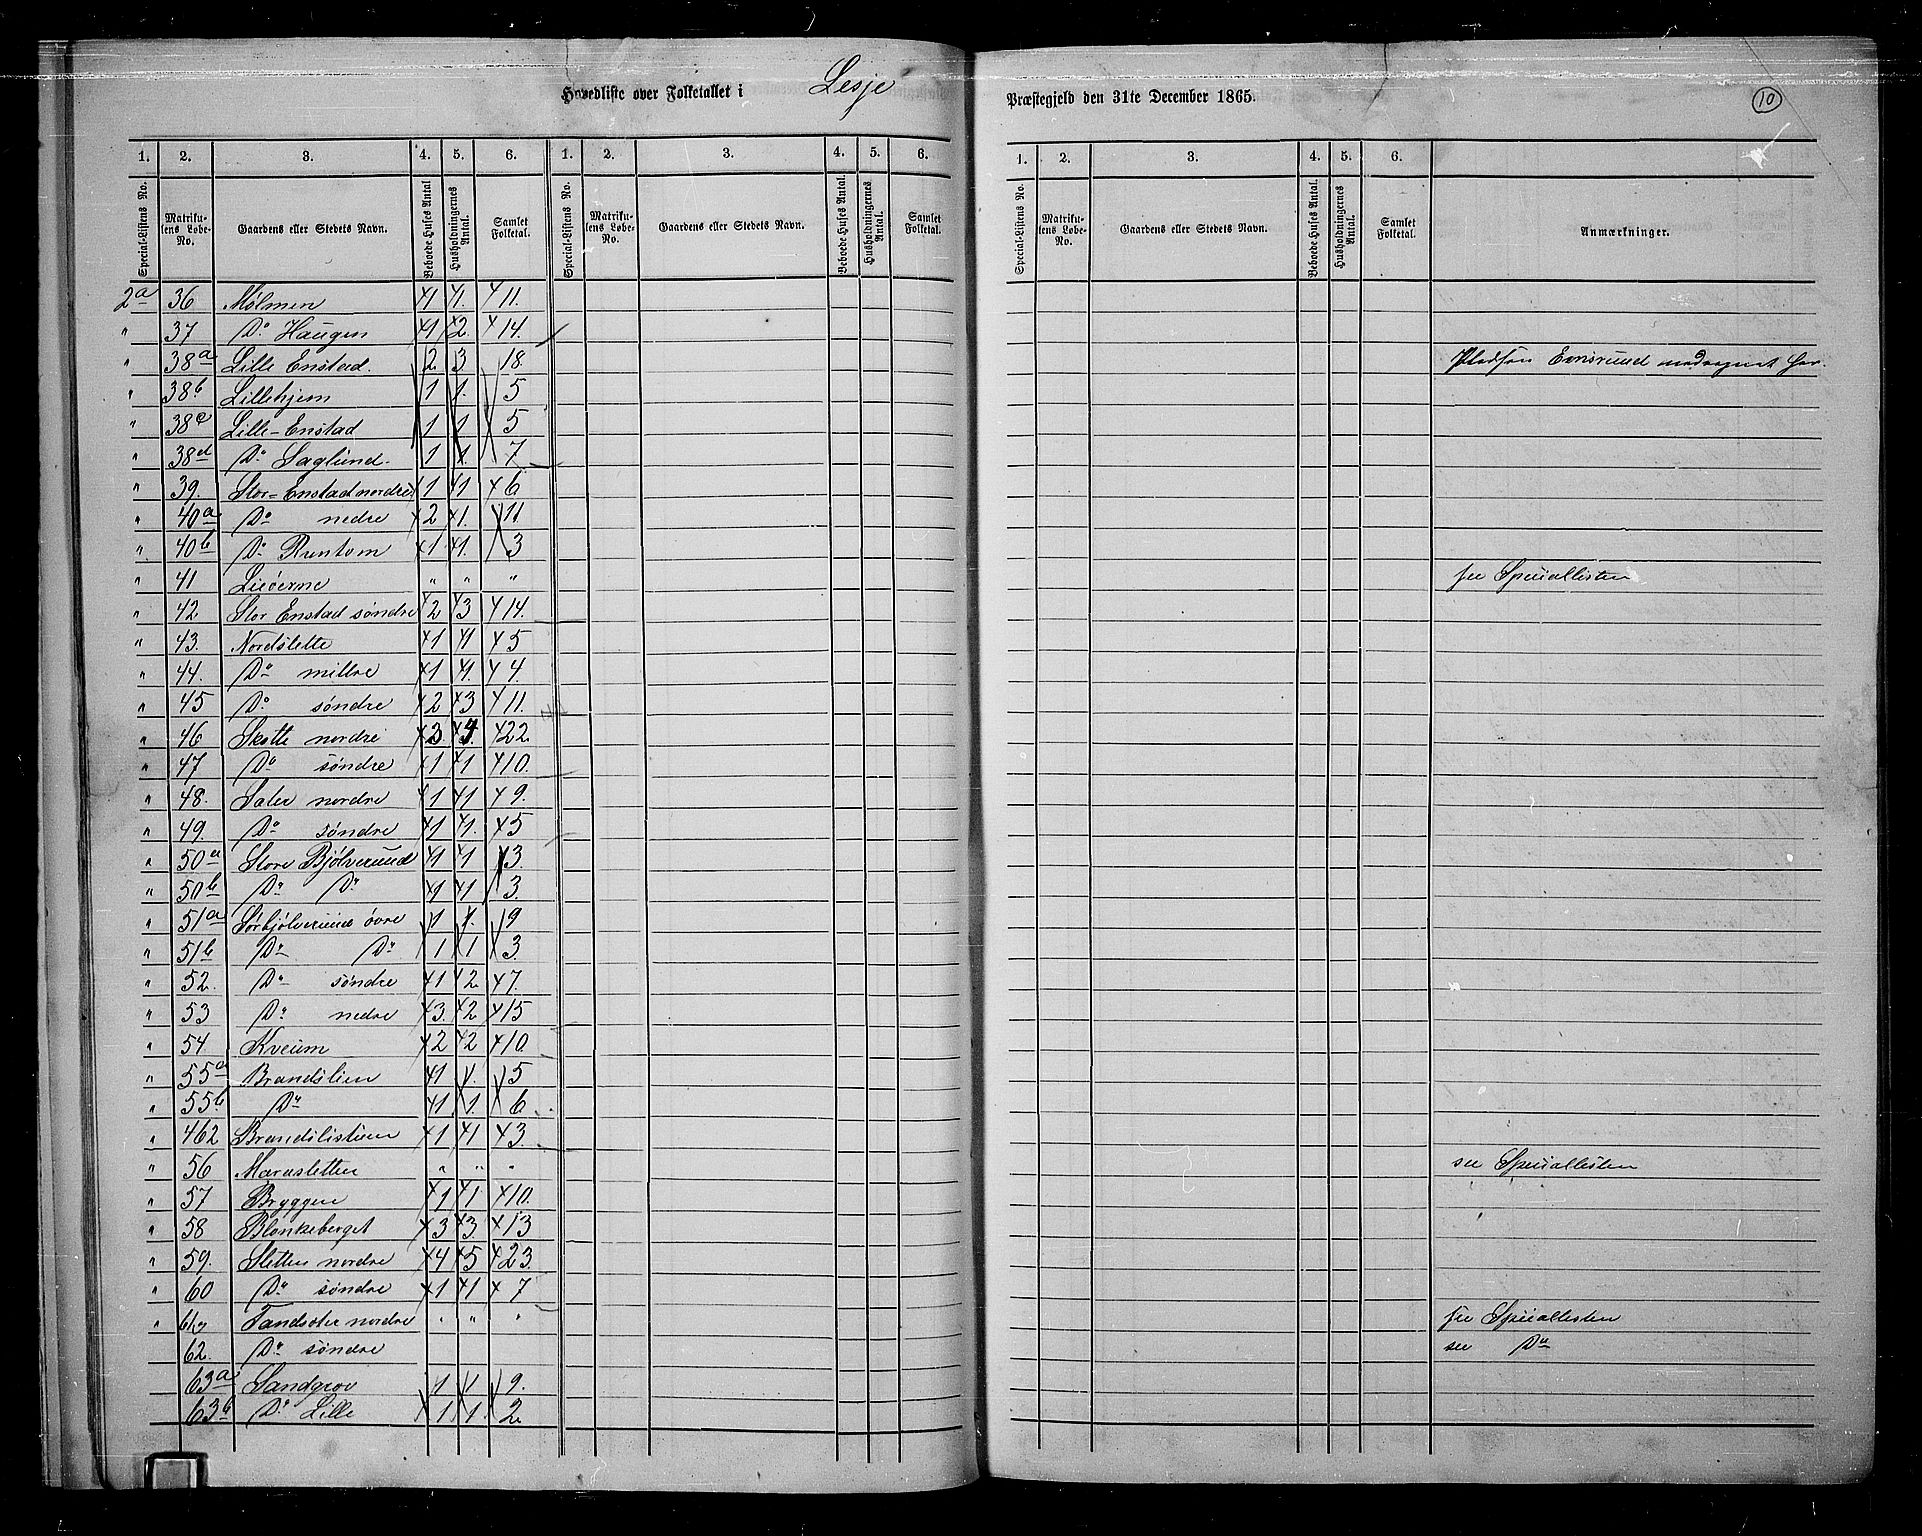 Hovedliste over Folketallet i Lesje Præstegjeld den 31te December 1865. 10
1. 2. 3. 4. 5. 6. 1. 2. 3. 4. 5. 6. 1. 2. 3. 4. 5. 6.
Special-Listens No. Matrikulens Løbe-No. Gaardens eller Stedets Navn. Beboede Huses Antal Husholdningernes Antal. Samlet Folketal. Special-Listens No. Matrikulens Løbe-No. Gaardens eller Stedets Navn. Beboede Huses Antal. Husholdningernes Antal. Samlet Folketal. Special-Listens No. Matrikulens Løbe-No. Gaardens eller Stedets Navn. Beboede Huses Antal. Husholdningernes Antal. Samlet Folketal. Anmærkninger.
2a 36 Mølmen 1 1. 11.
" 37 Do Haugen 1 2. 14.
" 38a Lille Enstad. 2 3 18. Pladsen Ensrund medregnet her.
" 38b Lillehjem 1 1. 5
" 38c Lille-Enstad 1 1 5
" 38d Do Saglund. 1 1. 7
" 39. Stor-Enstad nordre 1 1 6
" 40a Do nedre 2 1. 11.
" 40b Do Runtom 1 1. 3
" 41 Lieøerne " " " see Speciallisten
" 42 Stor Enstad søndre 2 3 14.
" 43. Nordslette 1 1 5
" 44. Do millre 1 1. 4.
" 45 Do søndre 2 3 11.
" 46 Skotte nordre 3. 4. 22.
" 47 Do søndre 1 1 10.
" 48. Sater nordre 1 1 9.
" 49. Do søndre 1 1. 5
" 50a Store Bjølverund 1 1 3.
" 50b Do Do 1 1 3.
" 51a Sørbjølverund øvre 1 1. 9
" 51b Do Do 1 1 3
" 52. Do søndre 1 2 7.
" 53 Do nedre 3. 2 15
" 54 Kveum 2 2 10.
" 55a Brandslien 1 1. 5
" 55b Do 1 1. 6
" 462 Brandslistuen 1 1 3.
" 56 Marasletten " " " see Speciallisten
" 57 Bryggen 1 1. 10.
" 58 Blankeberget 3 3. 13
" 59. Sletten nordre 4 5 23.
" 60 Do søndre 1 1 7
" 61 Tandsæter nordre " " " see Speciallisten
62. Do søndre see Do
63a Sandgrov 1 1 9.
63b Do Lille 1 1 2